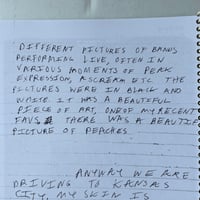 DIFFERENT PICTURES OF BANDS
PERFORMING LIVE, OFTEN IN
VARIOUS MOMENTS OF PEAK
EXPRESSION, A SCREAM ETC. THE
PICTURES WERE IN BLACK AND
WHITE. IT WAS A BEAUTIFUL
PIECE OF ART, ONE OF MY RECENT
FAVS THERE WAS A BEAUTIF
PICTURE OF PEACHES.
ANYWAY WE ARE
DRIVING TO KANSAS
CITY, MY SKIN IS